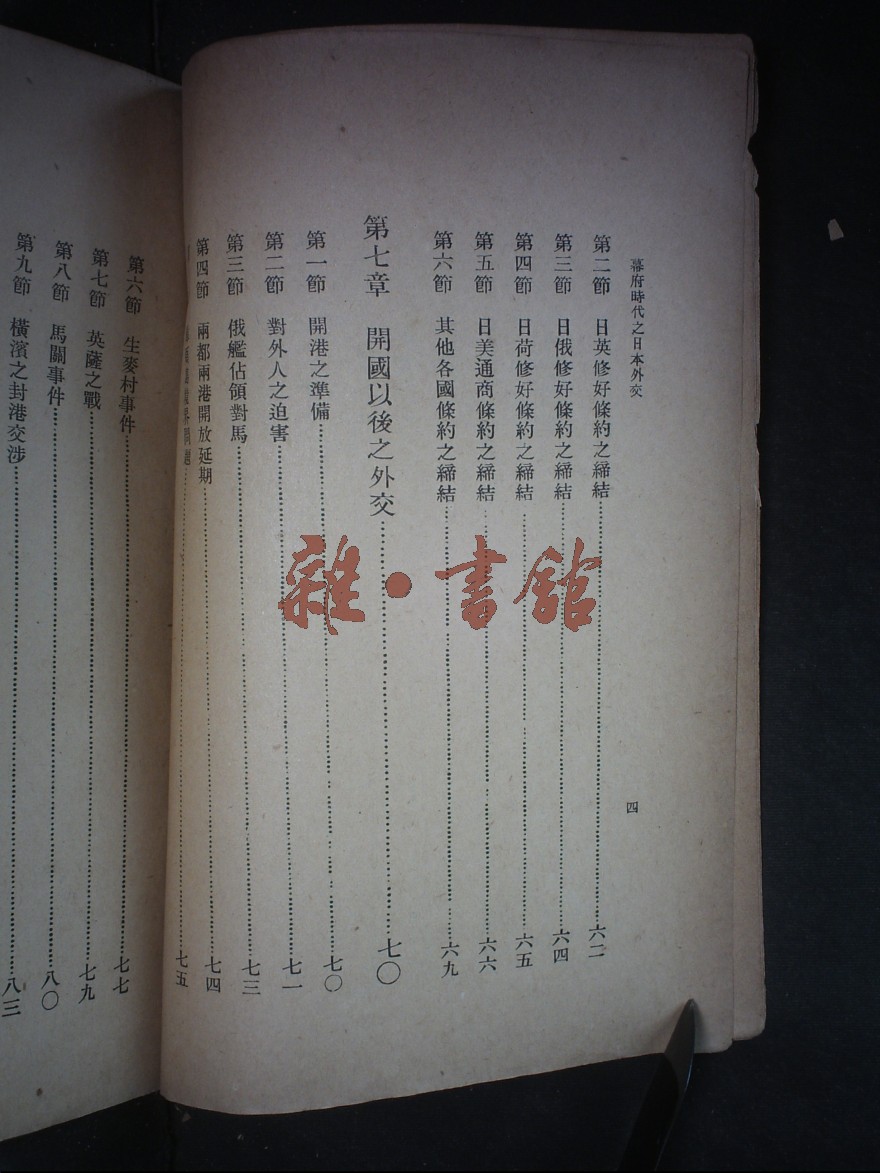 幕府時代之日本外交
四
第二節 日英修好條約之締結……六二
第三節 日俄修好條約之締結……六四
第四節 日荷修好條約之締結……六五
第五節 日美通商條約之締結……六六
第六節 其他各國條約之締結……六九
第七章 開國以後之外交……七〇
第一節 開港之準備……七〇
第二節 對外人之迫害……七一
第三節 俄艦佔領對馬……七三
第四節 兩都兩港開放延期……七四
……七五
第六節 生麥村事件……七七
第七節 英薩之戰……七九
第八節 馬關事件……八〇
第九節 橫濱之封港交涉……八三
雜·書館